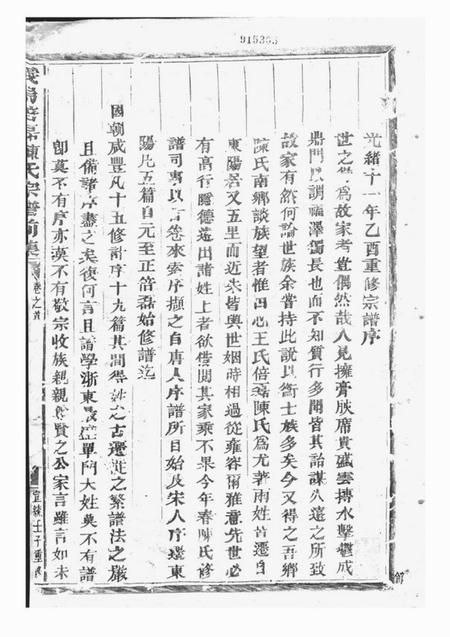 915303
光緒十一年乙酉重修宗譜序
世之稱為故家者豈偶然哉人見擁膏腴席貴盛雲摶水擊號成
鼎門以謂福澤獨長也而不知質行多聞皆其詒謀久遠之所致
故家有然何論世族余嘗持此說以衡士族多矣今又得之吾鄉
陳氏南鄉談族望者惟田心王氏倍磊陳氏為尤著兩姓皆遷自
東陽居又五里而近朱皆與世姻時相過從雍容爾雅意先世必
有高行瞻德遠出諸姓上者欲借閱其家乘不果今年春陳氏修
譜司事以首卷來索序擷之自唐人序譜所目始及宋人序遷東
陽凡五篇自元至正倍磊始修譜迄
國朝咸豐凡十五修計序十九篇其間得姓之古遷徙之繁譜法之嚴
且備諸序盡之矣復何言且譜學浙東最盛單門大姓莫不有譜
卽莫不有序亦莫不有敬宗收族親親尊賢之公家言雖言如未
義烏倍磊陳氏宗譜前集
卷之首
宣統壬子重